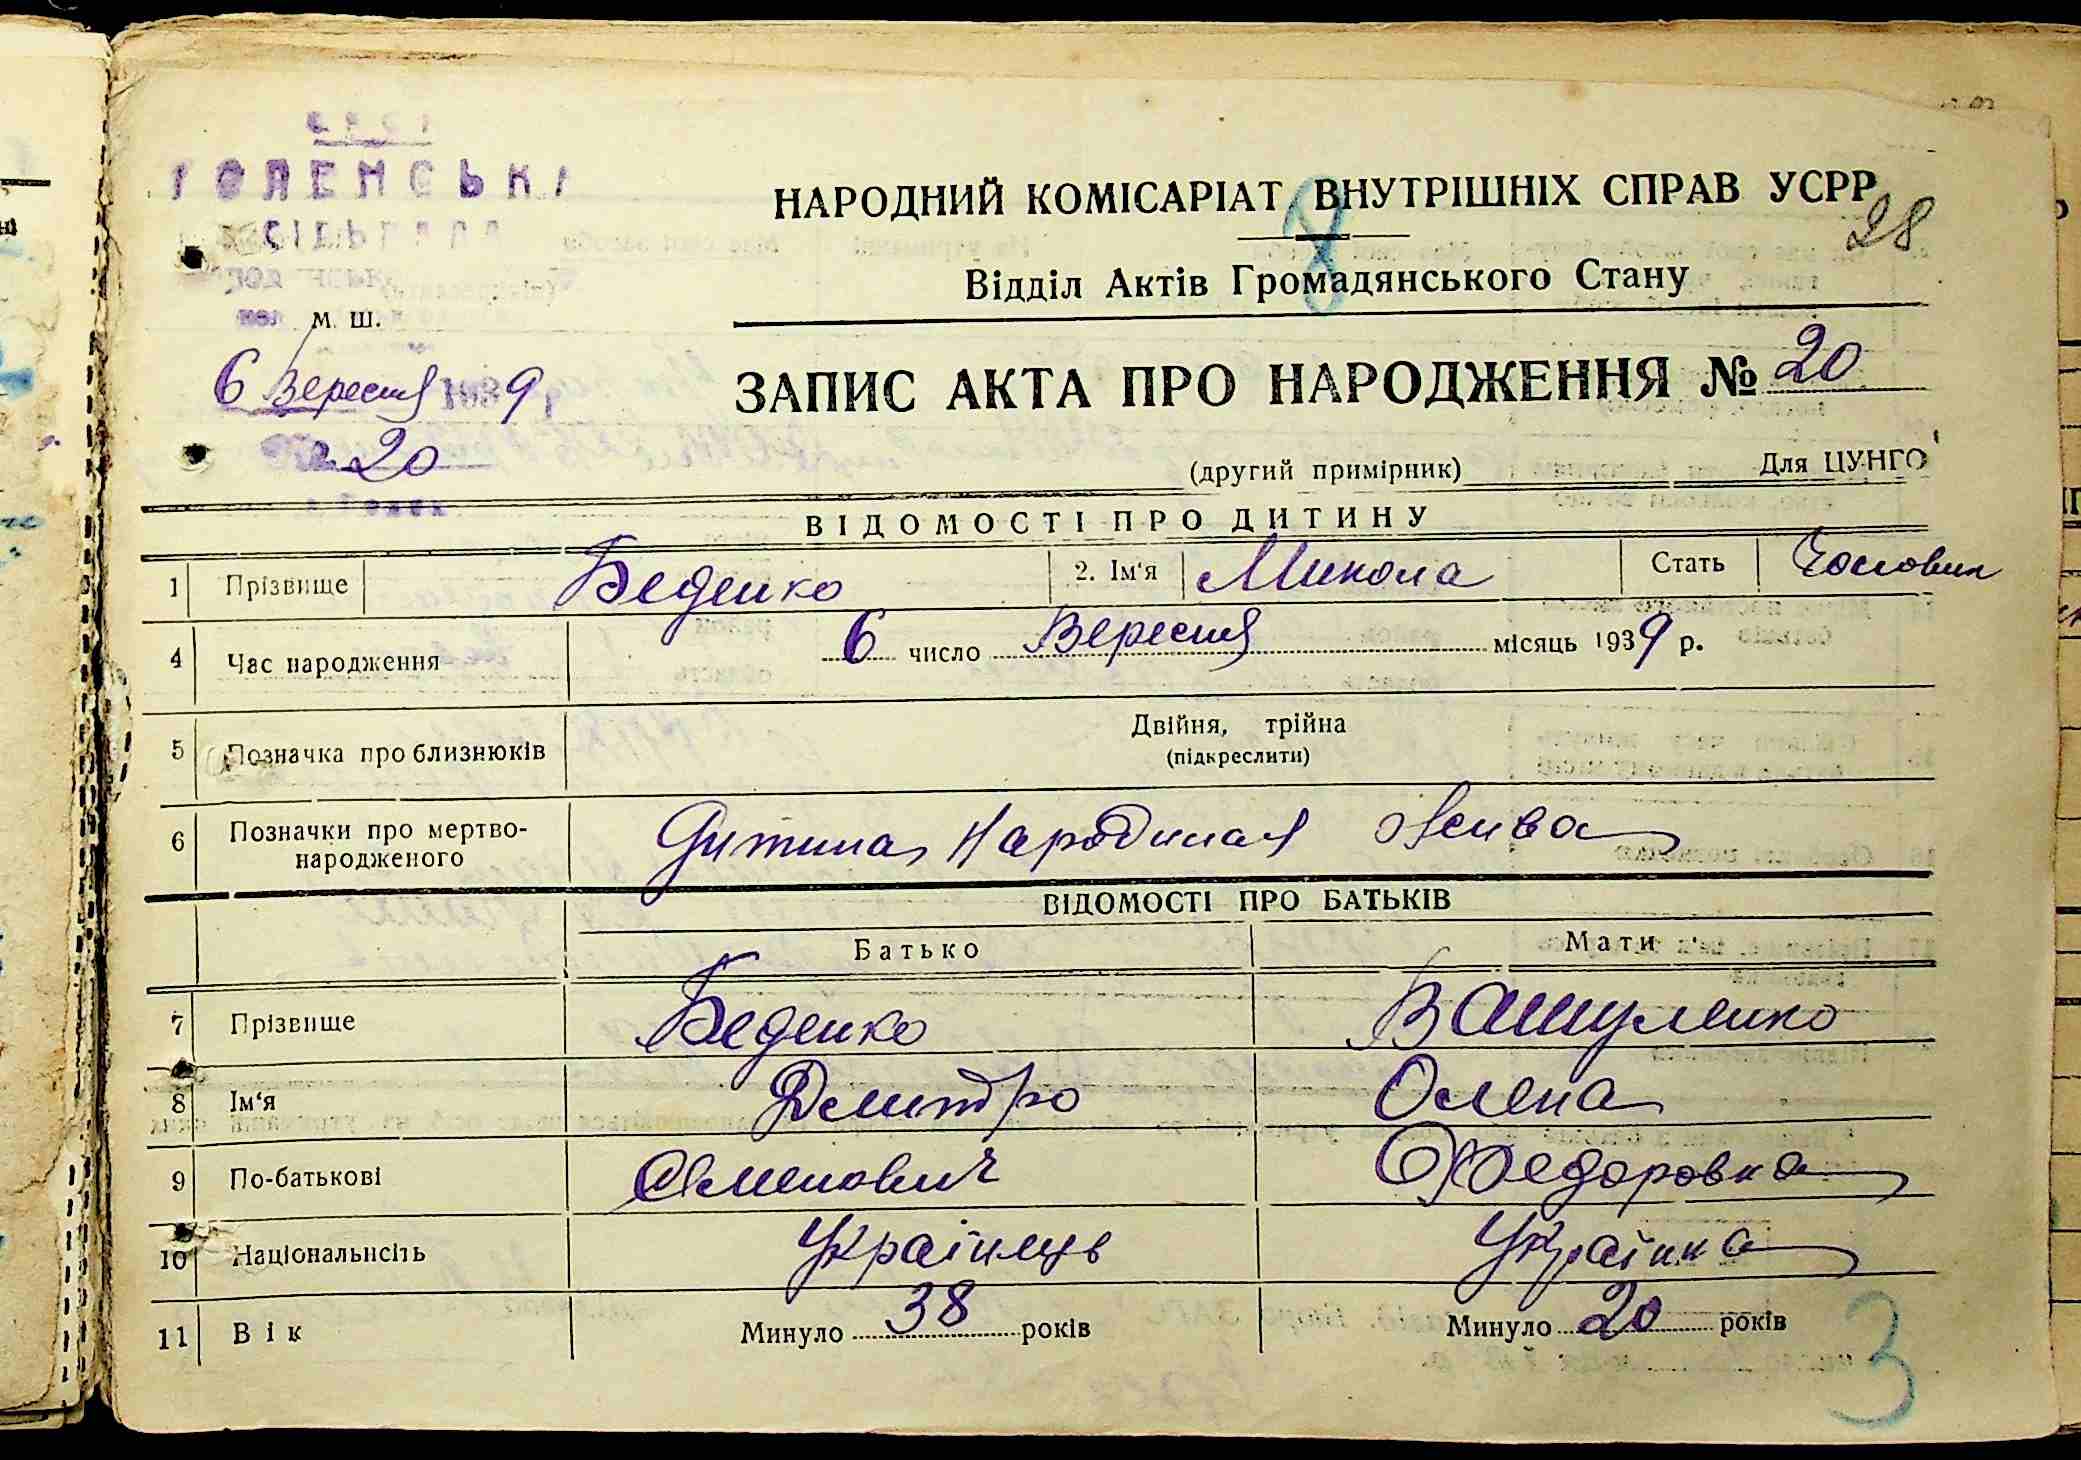 28
НАРОДНИЙ КОМІСАРІАТ ВНУТРІШНІХ СПРАВ УСРР
8
Відділ Актів Громадянського Стану
СІЛЬРАДА
М. Ш.
6 Вересня 1939
20
ЗАПИС АКТА ПРО НАРОДЖЕННЯ № 20
(другий примірник) Для ЦУНГО
ВІДОМОСТІ ПРО ДИТИНУ
1 Прізвище Беденко 2. Ім'я Микола Стать Чоловик
4 Час народження 6 число Вересня місяць 1939 р.
5 Позначка про близнюків Двійня, трійна
(підкреслити)
6 Позначки про мертво-
народженого Дитина Народилася Жива
ВІДОМОСТІ ПРО БАТЬКІВ
Батько Мати
7 Прізвище Беденко Вашуленко
8 Ім'я Дмитро Олена
9 По-батькові Семенович Федоровка
10 Національність Українець Українка
11 Вік Минуло 38 років Минуло 20 років
3